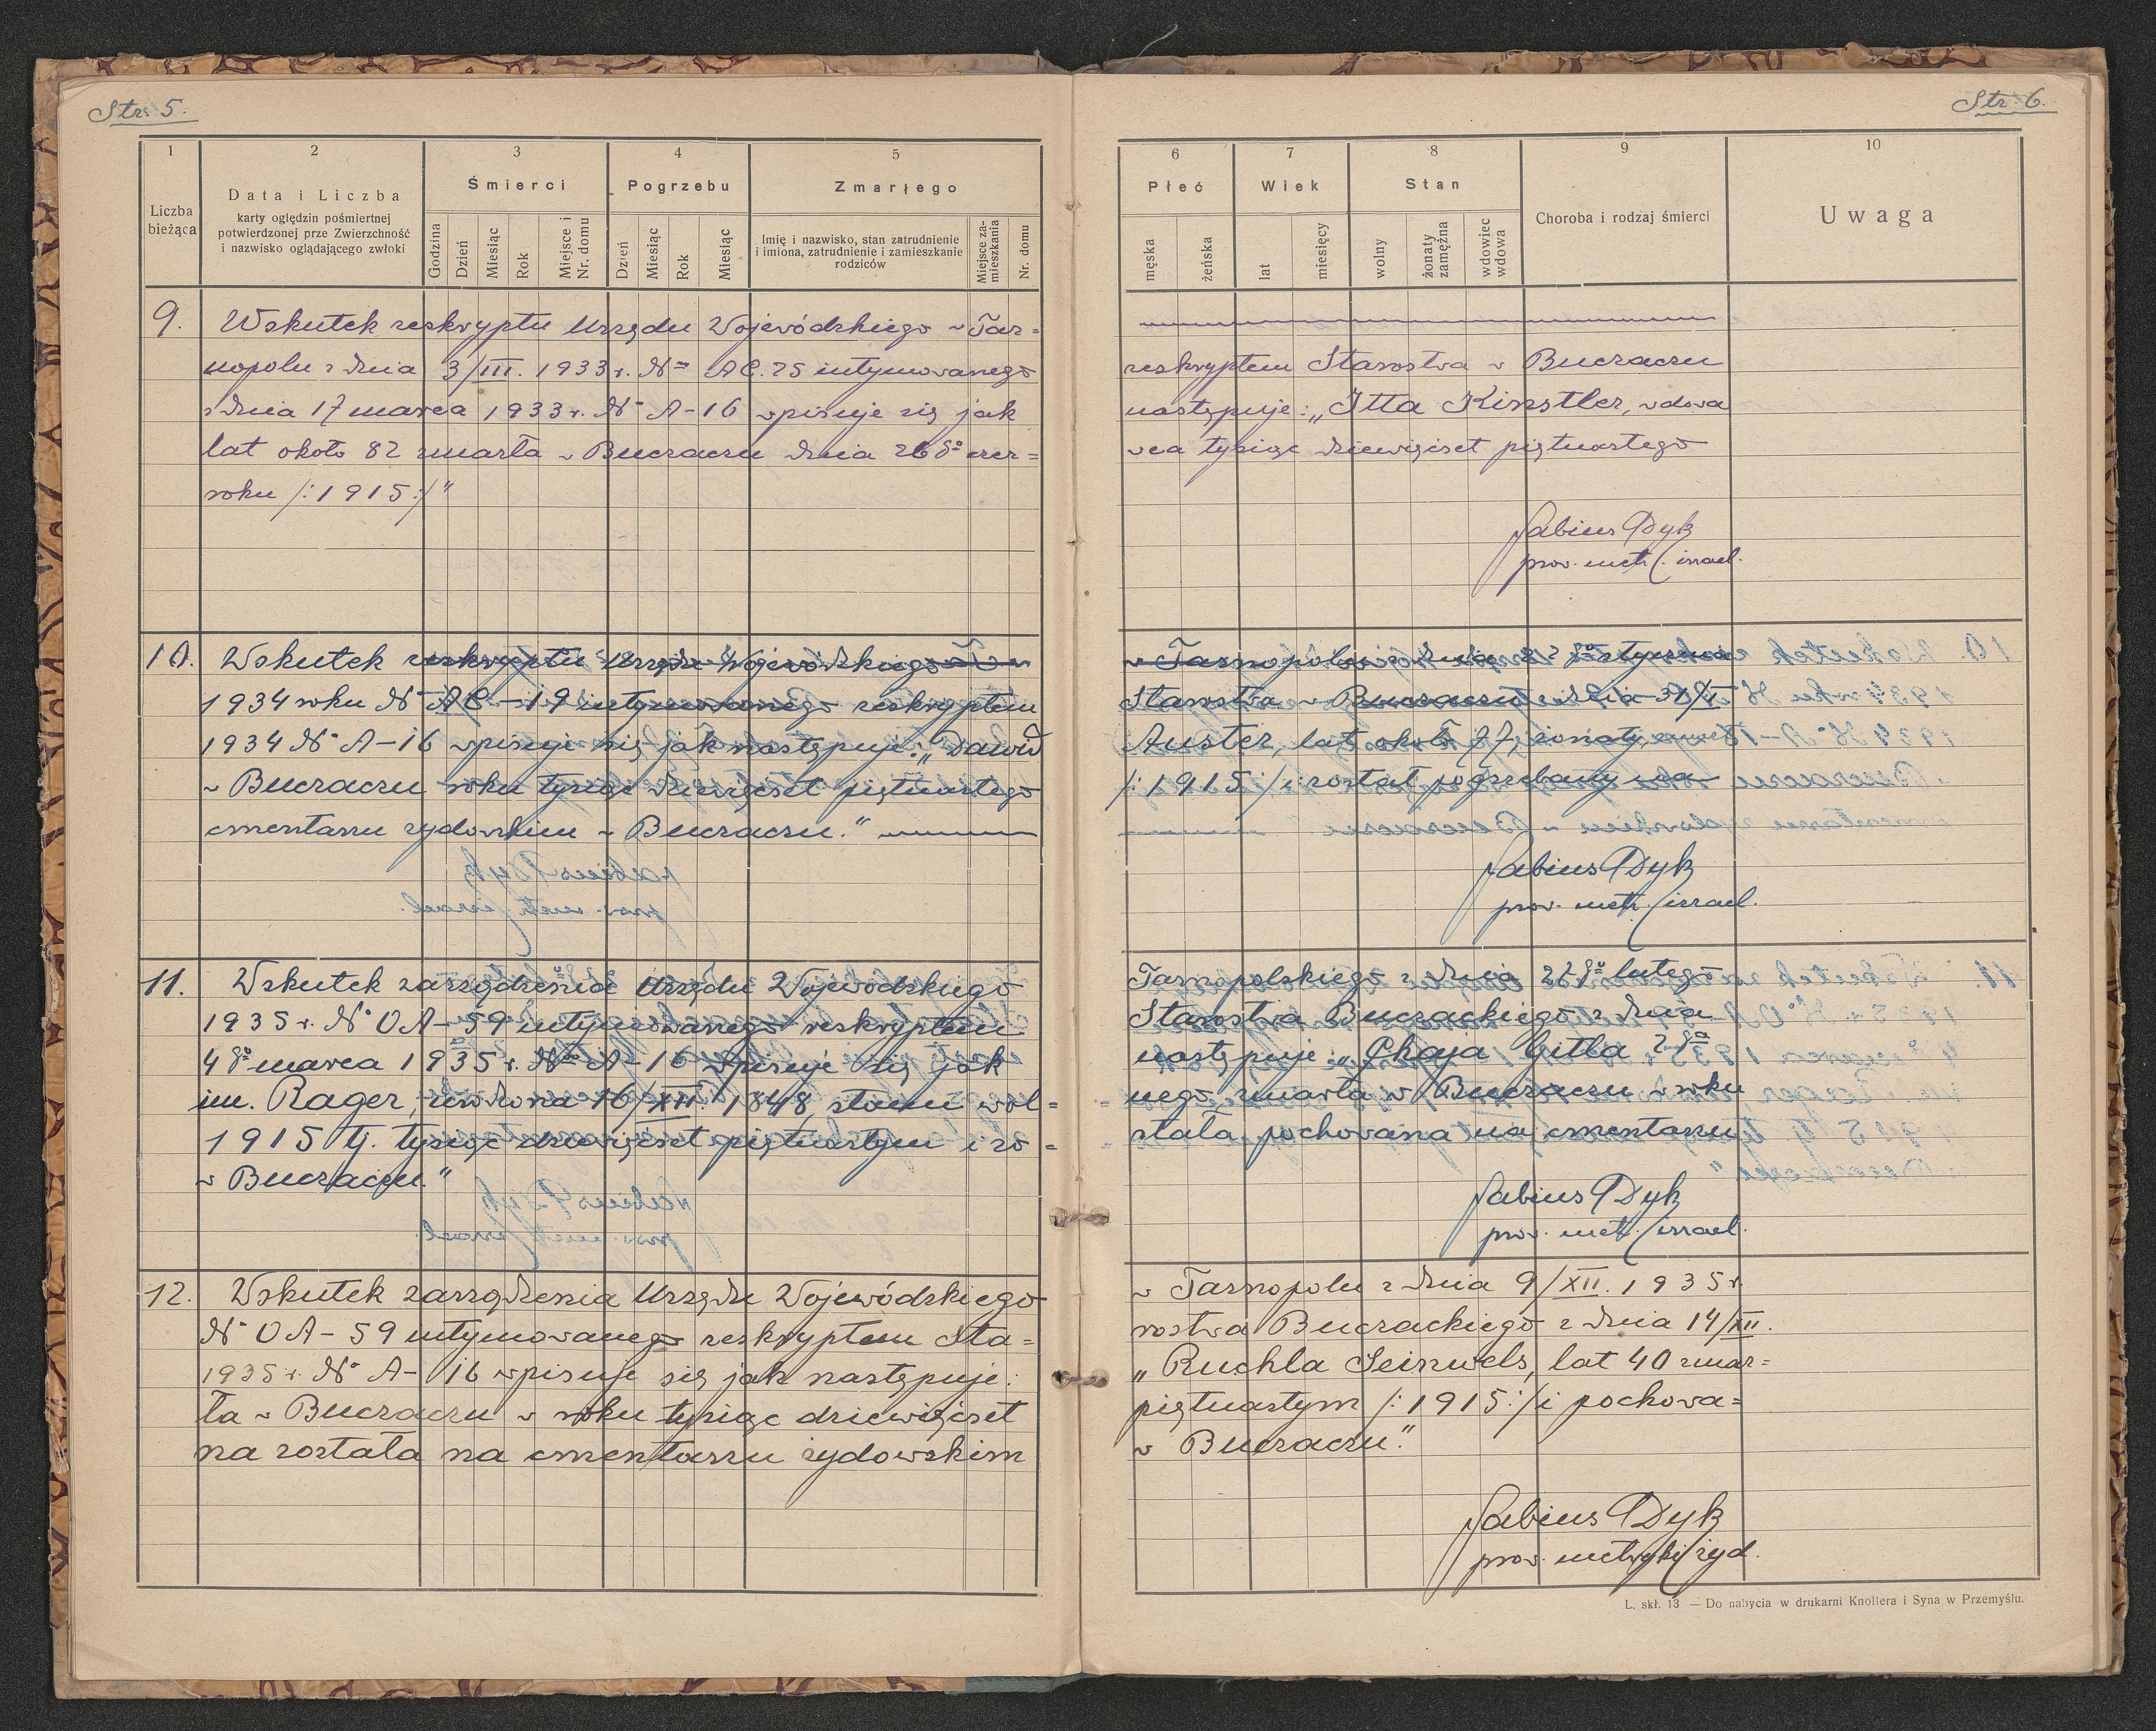 Str. 5.
1
2
3
4
5
Liczba bieżąca
Data i Liczba
karty oględzin pośmiertnej
potwierdzonej prze Zwierzchność
i nazwisko oglądającego zwłoki
Śmierci
Godzina
Dzień
Miesiąc
Rok
Miejsce i Nr. domu
Pogrzebu
Dzień
Miesiąc
Rok
Miesiąc
Zmarłego
Imię i nazwisko, stan zatrudnienie
i imiona, zatrudnienie i zamieszkanie
rodziców
Miejsce za-mieszkania
Nr. domu
9. Wskutek reskryptu Urzędu Wojewódzkiego w Tar=
nopolu z dnia 3/III. 1933 r. No AC. 25 intymowanego
z dnia 17 marca 1933 r. No A-16 wpisuje się jak
lat około 82 zmarła w Buczaczu dnia 26go czer=
roku /:1915:/"
10. Wskutek reskryptu Urzędu Wojewódzkiego
1934 roku No AC-19 intymowanego reskryptem
1934 No A-16 wpisuje się jak następuje: „Dawid
w Buczaczu roku tysiąc dziewięćset piętnastego
cmentarzu żydowskim w Buczaczu."
11. Wskutek zarządzenia Urzędu Wojewódzkiego
1935 r. No OA-59 intymowanego reskryptem
4go marca 1935 r. No A-16 wpisuje się jak
im. Rager, urodzona 16/XII. 1848, stanu wol=
1915 tj. tysiąc dziewięćset piętnastym i zo=
w Buczaczu."
12. Wskutek zarządzenia Urzędu Wojewódzkiego
No OA-59 intymowanego reskryptem Sta=
1935 r. No A-16 wpisuje się jak następuje:
ła w Buczaczu w roku tysiąc dziewięćset
na została na cmentarzu żydowskim
Str. 6.
6
7
8
9
10
Płeć
męska
żeńska
Wiek
lat
miesięcy
Stan
wolny
żonaty zamężna
wdowiec wdowa
Choroba i rodzaj śmierci
Uwaga
reskryptem Starostwa w Buczaczu
następuje: „Itta Kinstler, wdowa
wca tysiąc dziewięćset piętnastego
Fabius Dyk
prow. metr. izrael.
w Tarnopolu z dnia go stycznia
Starostwa w Buczaczu z dnia 31/I
Auster, lat około 77, żonaty, zmarł
/:1915:/ i został pogrzebany na
Fabius Dyk
prow. metr. izrael.
Tarnopolskiego z dnia go lutego
Starostwa Buczackiego z dnia
następuje: „Chaja Gitla 2-ga
nego, zmarła w Buczaczu w roku
stała pochowana na cmentarzu
Fabius Dyk
prow. metr. izrael.
w Tarnopolu z dnia 9/XII. 1935 r.
rostwa Buczackiego z dnia 14/XII.
„Ruchla Seinwels, lat 40 zmar=
piętnastym /:1915:/ i pochowa=
w Buczaczu."
Fabius Dyk
prow. metryki żyd.
L. skł. 13 — Do nabycia w drukarni Knollera i Syna w Przemyślu.